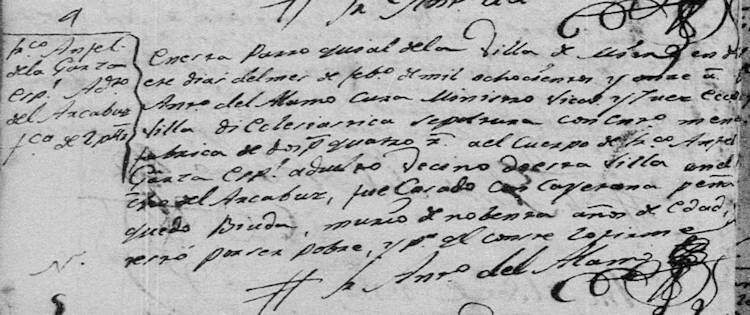 9
fr.co Anjel.
dela Garza
Esp.l Ad.to
del Arcabuz
En esta Parroquial dela Villa de Mier en
ere dias del mes de feb.o de mil ochocientos y onze
Ant.o del Alamo Cura Ministro Vic.o y Juez Ecc
Villa di Eclesiastica Sepultura con
fabrica de quatro r.s a el Cuerpo de fr.co Anjel
Garza Esp.l adulto Vecino de esta Villa en el
del Arcabuz, fue Casado con Cayetana peña
quedo Biuda, murió de nobenta años de Edad,
testó por ser Pobre, y p.a q.e conste lo firme
N.
fr Ant.o del Alamo